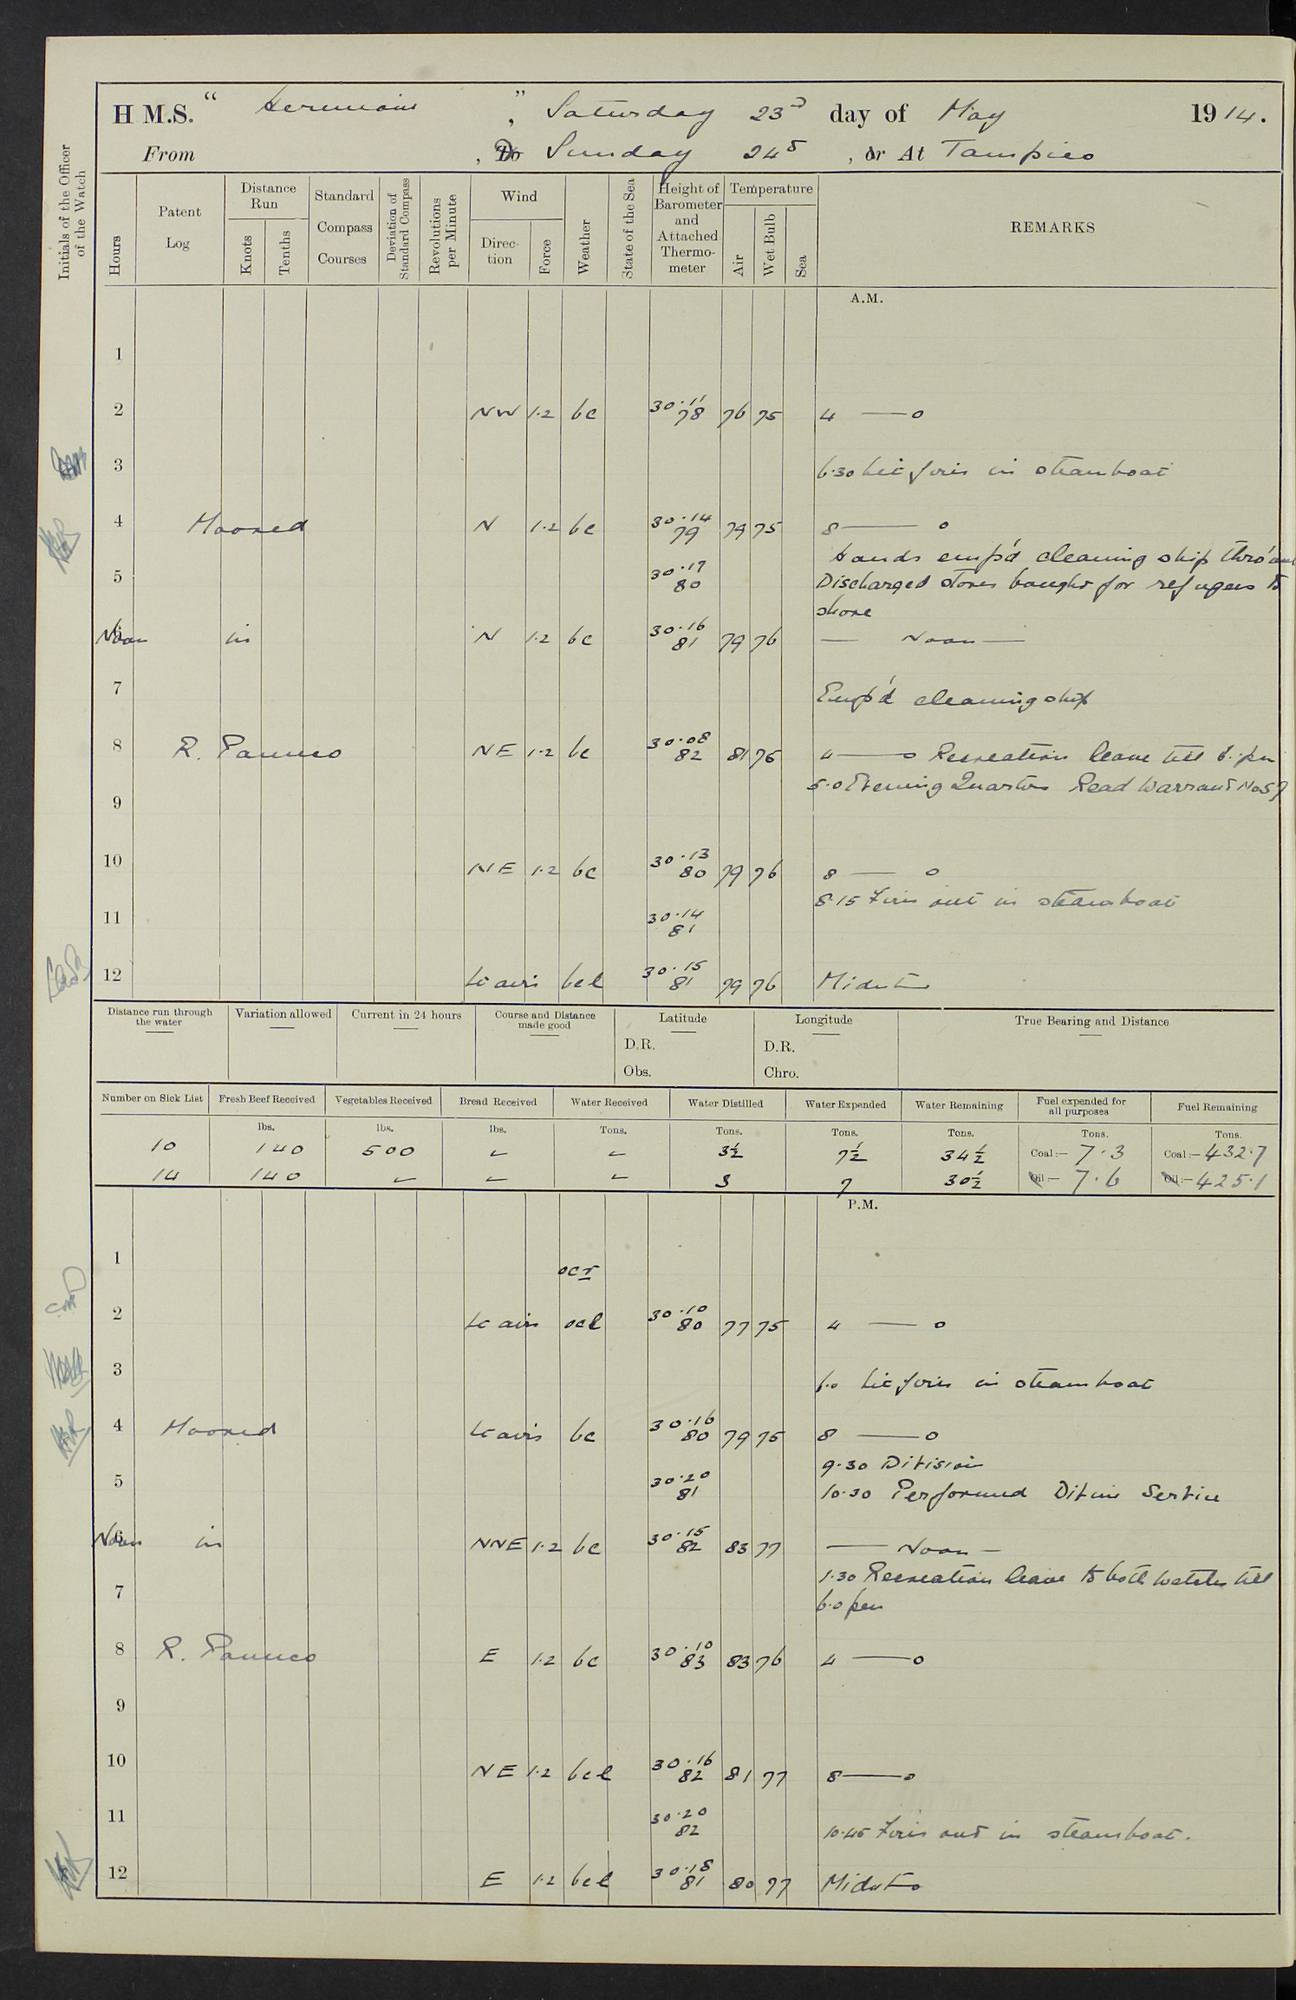 H M.S. “ Hermione ”, Saturday 23rd day of May 1914.
From , To Sunday 24th , or At Tampico
Initials of the Officer of the Watch
Hours
Patent Log
Distance Run
Knots
Tenths
Standard Compass Courses
Deviation of Standard Compass
Revolutions per Minute
Wind
Direction
Force
Weather
State of the Sea
Height of Barometer and Attached Thermometer
Temperature
Air
Wet Bulb
Sea
REMARKS
A.M.
1
2 NW 1.2 bc 30.11 78 76 75 4 — o
3 6.30 Lit fires in steamboat
4 Moored N 1.2 bc 30.14 79 79 75 8 — o
Hands emp'd cleaning ship thro'out
5 30.17 80 Discharged stores bought for refugees to
shore
6 Noon in N 1.2 bc 30.16 81 79 76 — Noon —
7 Emp'd cleaning ship
8 R. Panuco NE 1.2 bc 30.08 82 81 76 4 — o Recreation leave till 6. pm
9 5.0 Evening Quarters Read Warrant No 59
10 NE 1.2 bc 30.13 80 79 76 8 — o
8.15 Fires out in steamboat
11 30.14 81
12 Lt airs bcl 30.15 81 79 76 Midnt
Distance run through the water
Variation allowed
Current in 24 hours
Course and Distance made good
Latitude
D.R.
Obs.
Longitude
D.R.
Chro.
True Bearing and Distance
Number on Sick List Fresh Beef Received Vegetables Received Bread Received Water Received Water Distilled Water Expended Water Remaining Fuel expended for all purposes Fuel Remaining
lbs. lbs. lbs. Tons. Tons. Tons. Tons. Tons. Tons.
10 140 500 – – 3½ 7½ 34½ Coal:– 7.3 Coal:– 432.7
14 140 – – – 3 7 30½ Oil:– 7.6 Oil:– 425.1
P.M.
1 ocr
2 Lt airs ocl 30.10 80 77 75 4 — o
3 6.0 Lit fires in steamboat
4 Moored Lt airs bc 30.16 80 79 75 8 — o
9.30 Division
5 30.20 81 10.30 Performed Divine Service
6 Noon in NNE 1.2 bc 30.15 82 83 77 — Noon —
1.30 Recreation leave to both watches till
7 6.0 pm
8 R. Panuco E 1.2 bc 30.10 83 83 76 4 — o
9
10 NE 1.2 bcl 30.16 82 81 77 8 — o
11 30.20 82 10.45 Fires out in steamboat.
12 E 1.2 bcl 30.18 81 80 77 Midnt